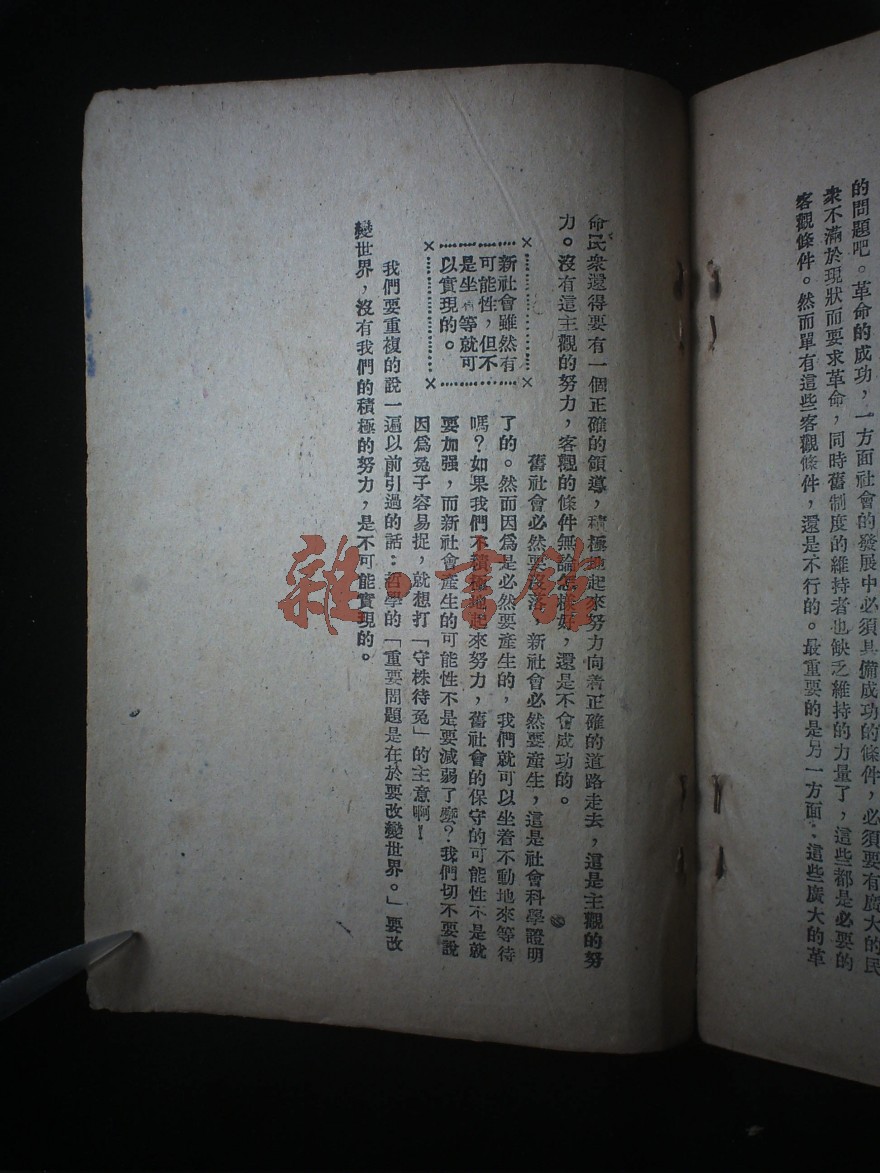 的問題吧。革命的成功，一方面社會的發展中必須具備成功的條件，必須要有廣大的民
衆不滿於現狀而要求革命，同時舊制度的維持者也缺乏維持的力量了，這些都是必要的
客觀條件。然而單有這些客觀條件，還是不行的。最重要的是另一方面：這些廣大的革
命民衆還得要有一個正確的領導，積極地起來努力向着正確的道路走去，這是主觀的努
力。沒有這主觀的努力，客觀的條件無論怎樣好，還是不會成功的。
新社會雖然有
可能性，但不
是坐等就可
以實現的。
舊社會必然要沒落，新社會必然要產生，這是社會科學證明
了的。然而因爲是必然要產生的，我們就可以坐着不動地來等待
嗎？如果我們不積極地起來努力，舊社會的保守的可能性不是就
要加强，而新社會產生的可能性不是要減弱了麼？我們切不要說
因爲兔子容易捉，就想打「守株待兔」的主意啊！
我們要重複的說一遍以前引過的話：哲學的「重要問題是在於要改變世界。」要改
變世界，沒有我們的積極的努力，是不可能實現的。
雜·書館